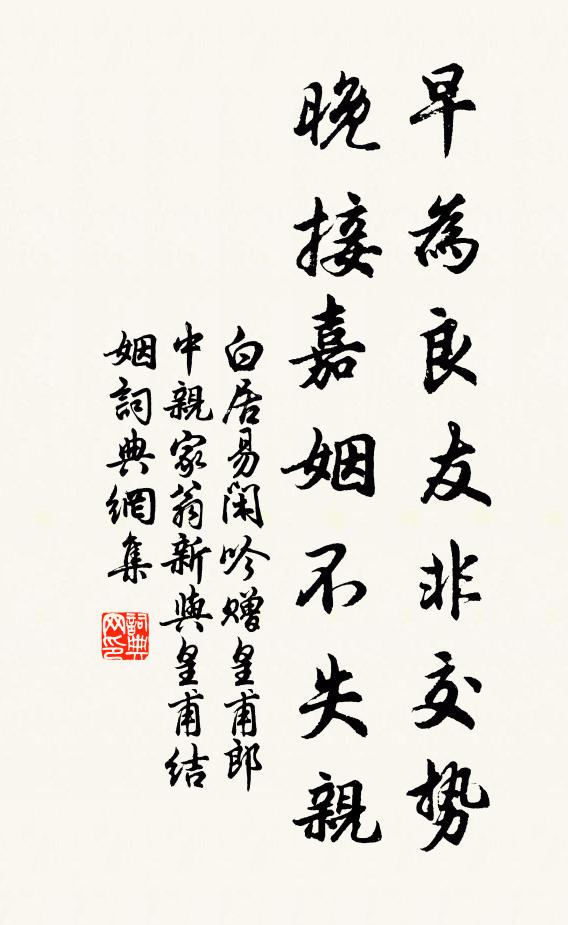 早為良友非交勢
晚接嘉姻不失親
白居易閑吟贈皇甫郎
中親家翁新與皇甫結
姻詞典網集
詞典网印